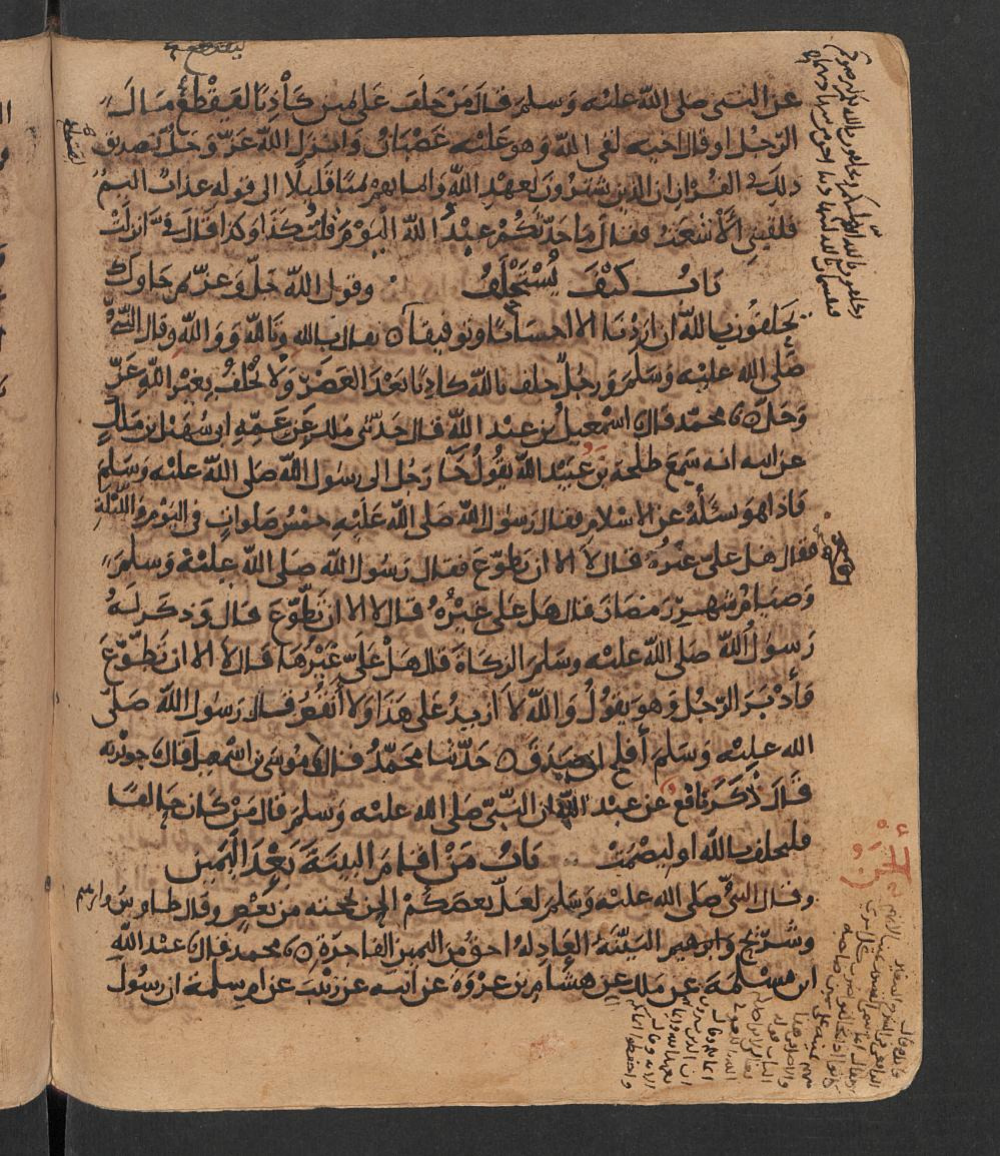 عن النبي صلى الله عليه وسلم قال من حلف على يمين كاذبا ليقطع مال
الرجل او قال اخيه لقي الله وهو عليه غضبان وانزل الله عز وجل تصديق
ذلك في القران ان الذين يشترون بعهد الله وايمانهم ثمنا قليلا الى قوله عذاب اليم
فلقيني الاشعث فقال ما حدثكم عبد الله اليوم قلت كذا وكذا قال في انزلت
باب كيف يستحلف وقول الله جل وعز ثم جاوك
يحلفون بالله ان اردنا الا احسانا وتوفيقا يقال بالله وتالله ووالله وقال النبي
صلى الله عليه وسلم ورجل حلف بالله كاذبا بعد العصر ولا يحلف بغير الله عز
وجل محمد قال اسمعيل بن عبد الله قال حدثني ملك عن عمه ابي سهيل بن ملك
عن ابيه انه سمع طلحة بن عبيد الله يقول جا رجل الى رسول الله صلى الله عليه وسلم
فاذا هو يسئله عن الاسلام فقال رسول الله صلى الله عليه خمس صلوات في اليوم والليلة
فقال هل علي غيره قال لا الا ان تطوع فقال رسول الله صلى الله عليه وسلم
وصيام شهر رمضان قال هل علي غيره قال لا الا ان تطوع قال وذكر له
رسول الله صلى الله عليه وسلم الزكاة قال هل علي غيرها قال لا الا ان تطوع
فأدبر الرجل وهو يقول والله لا ازيد على هذا ولا أنقص قال رسول الله صلى
الله عليه وسلم أفلح ان صدق حدثنا محمد قال موسى بن اسمعيل قال جويرية
قال ذكر نافع عن عبد الله ان النبي صلى الله عليه وسلم قال من كان حالفا
فليحلف بالله او ليصمت باب من اقام البينة بعد اليمين
وقال النبي صلى الله عليه وسلم لعل بعضكم الحن بحجته من بعض وقال طاوس وابرهيم
وشريح وابرهيم البينة العادلة احق من اليمين الفاجرة محمد قال عبد الله
ابن مسلمة عن ملك عن هشام بن عروة عن ابيه عن زينب عن ام سلمة ان رسول